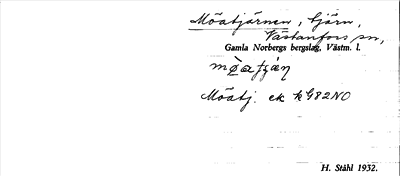 Möatjärnen, tjärn,
Västanfors sn,
Gamla Norbergs bergslag, Västm. l.
Möatj. ek k G82NO
H. Ståhl 1932.